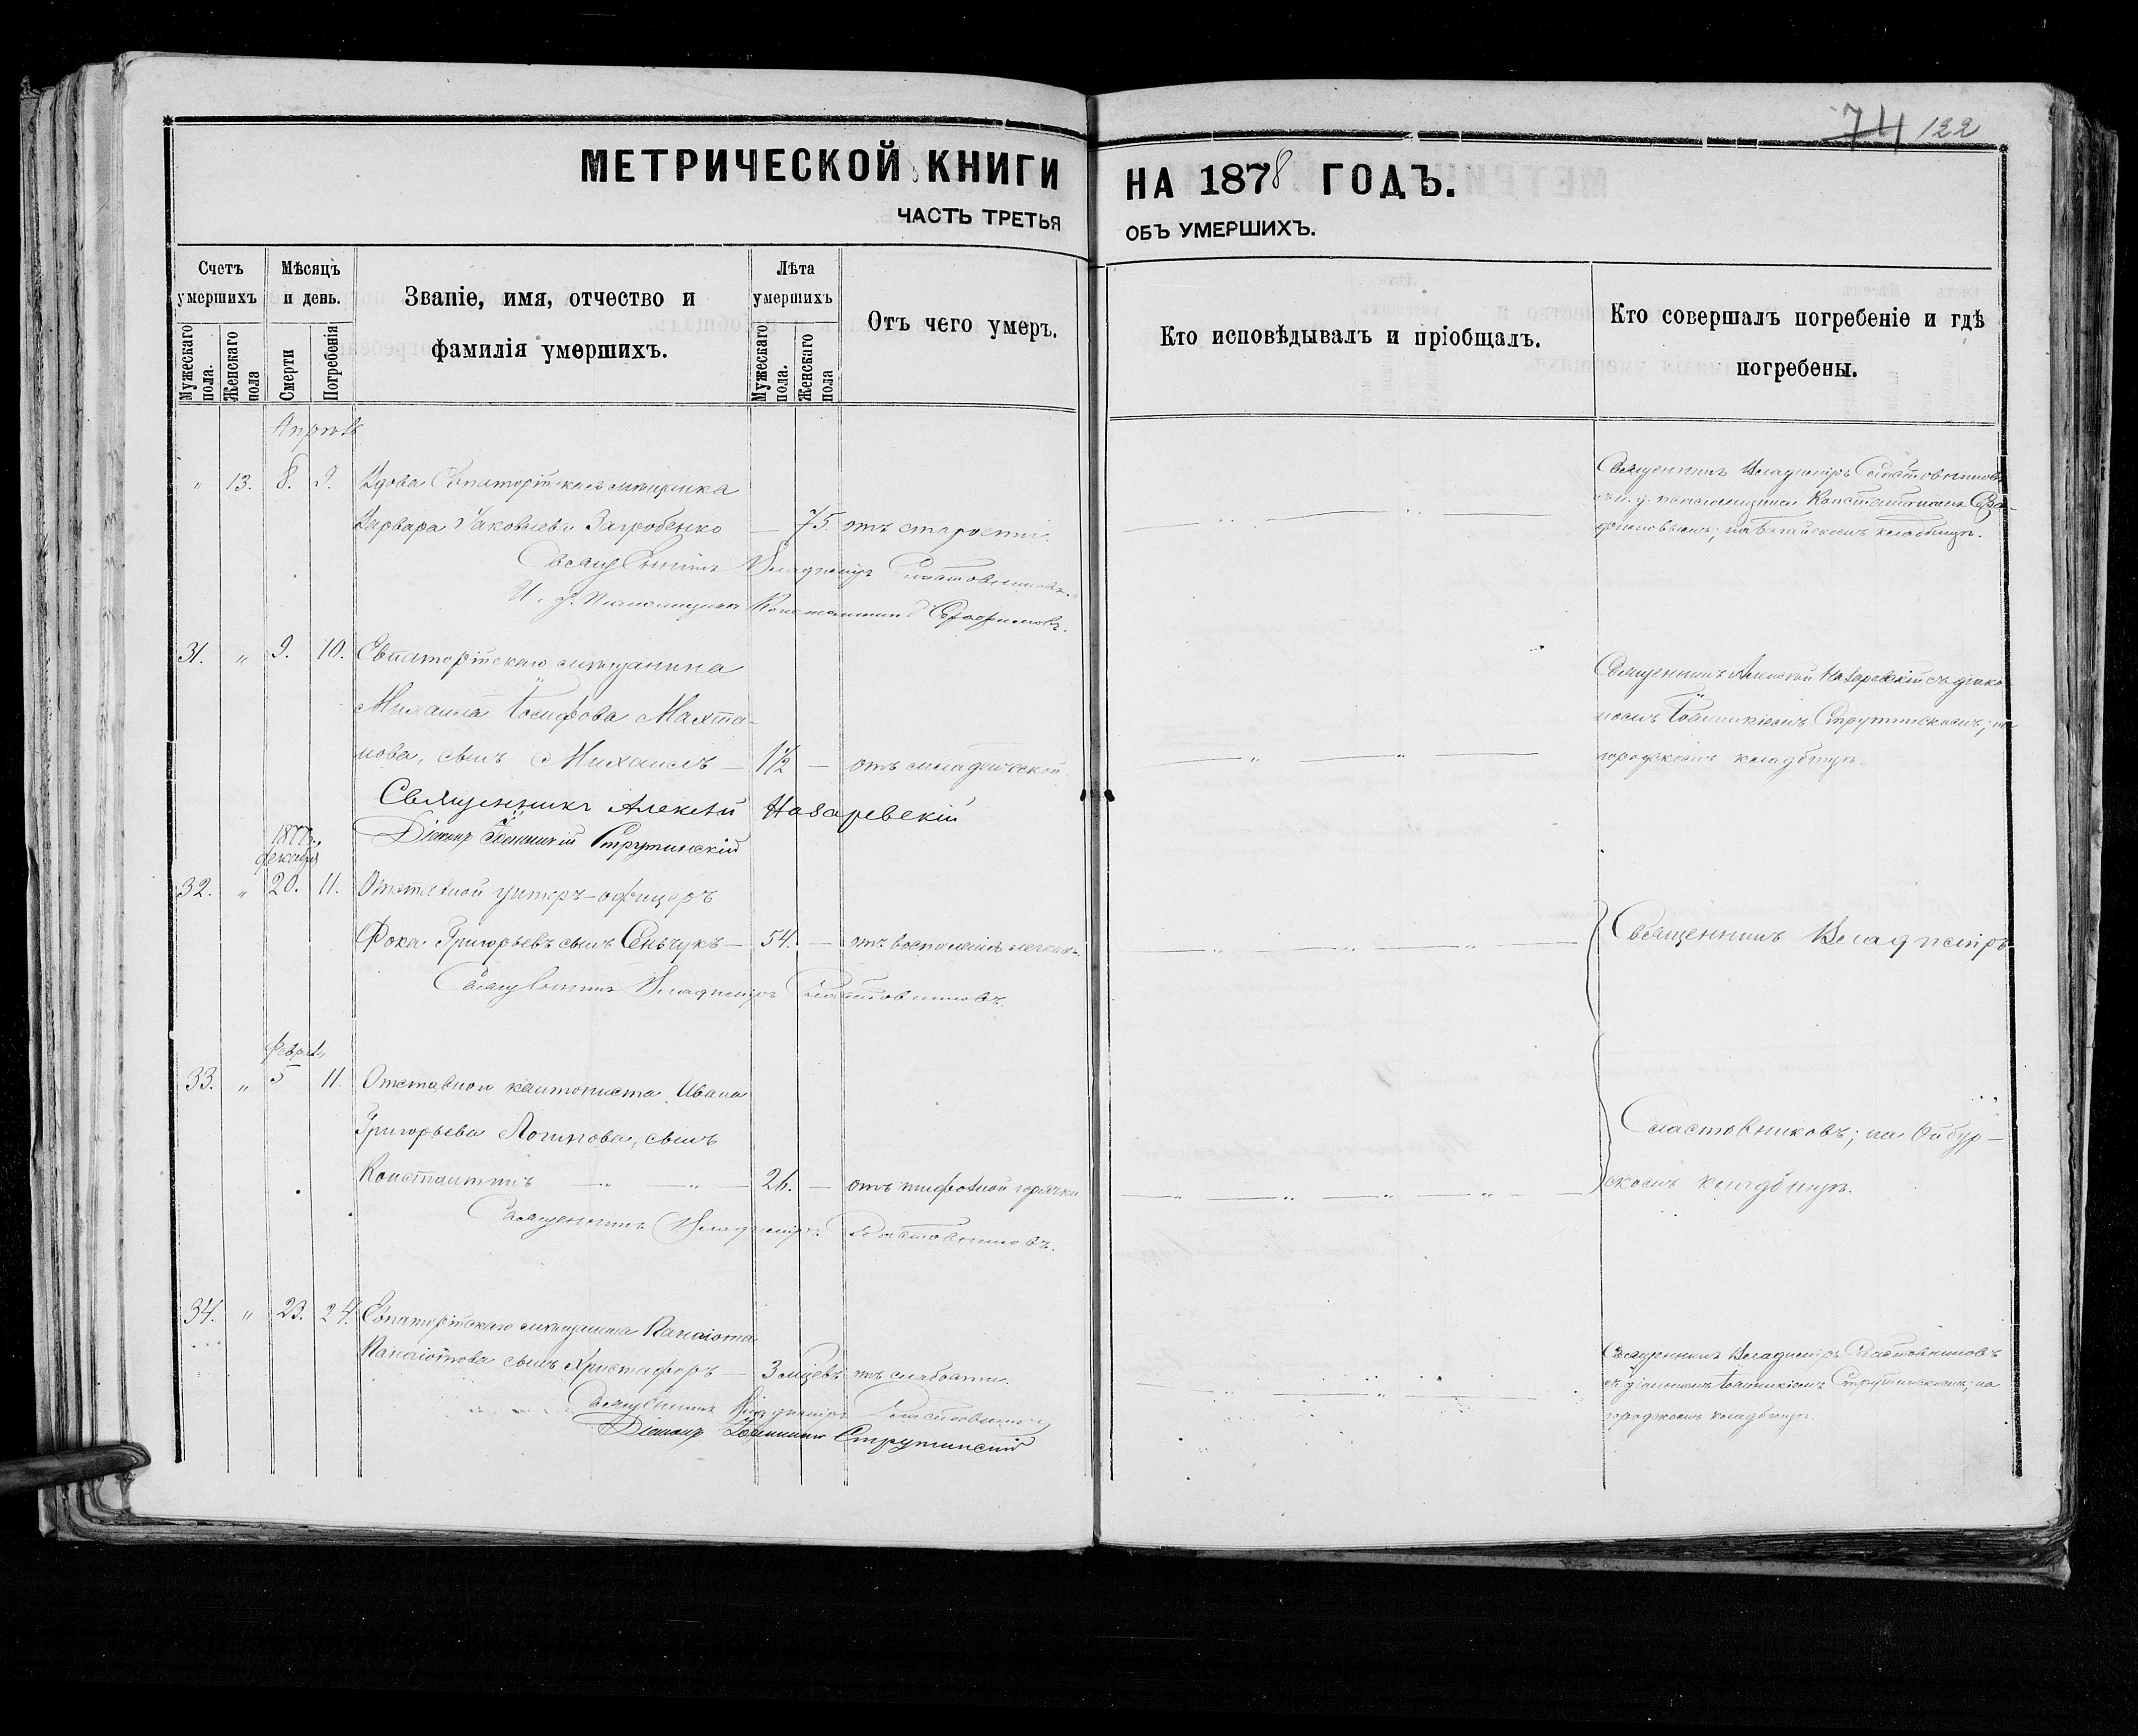 74 122
МЕТРИЧЕСКОЙ КНИГИ НА 1878 ГОДЪ.
ЧАСТЬ ТРЕТЬЯ ОБЪ УМЕРШИХЪ.
Счетъ умершихъ
Мужескаго пола.
Женскаго пола
Мѣсяцъ и день.
Смерти
Погребенія
Званіе, имя, отчество и фамилія умершихъ.
Лѣта умершихъ
Мужескаго пола.
Женскаго пола
Отъ чего умеръ.
Кто исповѣдывалъ и пріобщалъ.
Кто совершалъ погребеніе и гдѣ погребены.
Апрѣль
" 13. 8. 9. Вдова Евпаторійская мѣщанка
Варвара Яковлева Загробенко — 75. отъ старости.
Священникъ Владиміръ Сластовниковъ
Священникъ Владиміръ Сластовниковъ.
И. д. псаломщика Константинъ
кладбищѣ.
31. " 9. 10. Евпаторійскаго мѣщанина
Михаила Іосифова Махта-
нова, сынъ Михаилъ — 1½ — отъ младенческой
Священникъ Алексѣй Назаревскій съ діако-
номъ Іоанникіемъ Струтинскимъ; на
городскомъ кладбищѣ.
Священникъ Алексѣй Назаревскій
Діаконъ Іоанникій Струтинскій
1877 г.
декабря
32. " 20. 11. Отставной унтеръ-офицеръ
Фока Григорьевъ сынъ Сенчукъ — 54. — отъ воспаленія легкихъ.
Священникъ Владиміръ Сластовниковъ.
Священникъ Владиміръ
Феврал.
33. " 5 11. Отставного кантониста Ивана
Григорьева Логинова, сынъ
Константинъ — " — " — 26. — отъ тифозной горячки
Священникъ Владиміръ Сластовниковъ.
Сластовниковъ; на Ойбур-
скомъ кладбищѣ.
34. " 23. 24. Евпаторійскаго мѣщанина Панаіота
Панаіотова сынъ Христофоръ — 3 мѣсецевъ отъ слабости.
Священникъ Владиміръ Сластовниковъ
Діаконъ Іоанникій Струтинскій
Священникъ Владиміръ Сластовниковъ
съ діакономъ Іоанникіемъ Струтинскимъ; на
городскомъ кладбищѣ.